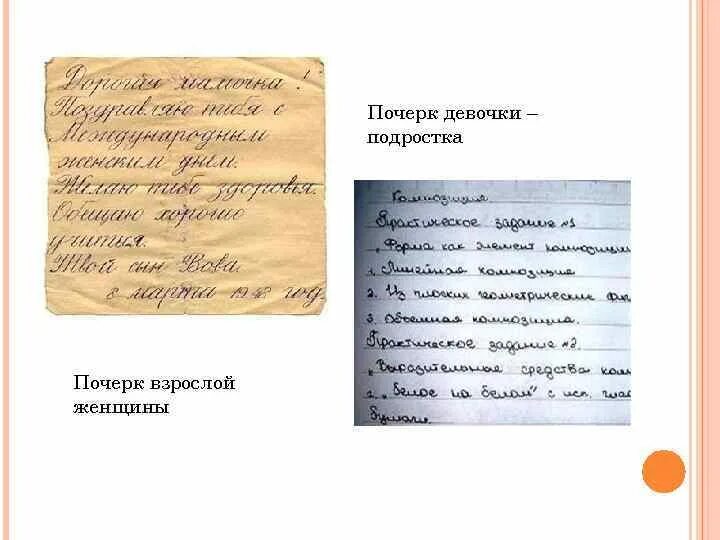 Дорогая мамочка!
Поздравляю тебя с
Международным
женским днём.
Желаю тебе здоровья.
Обещаю хорошо
учиться.
Твой сын Вова.
8 марта 19 год.
Почерк девочки –
подростка
Композиция
Практическое задание №1
"Форма как элемент композиции
1. Линейная композиция
2. Из плоских геометрических
3. Объемная композиция.
Практическое задание №2.
"Выразительные средства ком
1. "Белое на белом" с исп.
бумаги.
Почерк взрослой
женщины